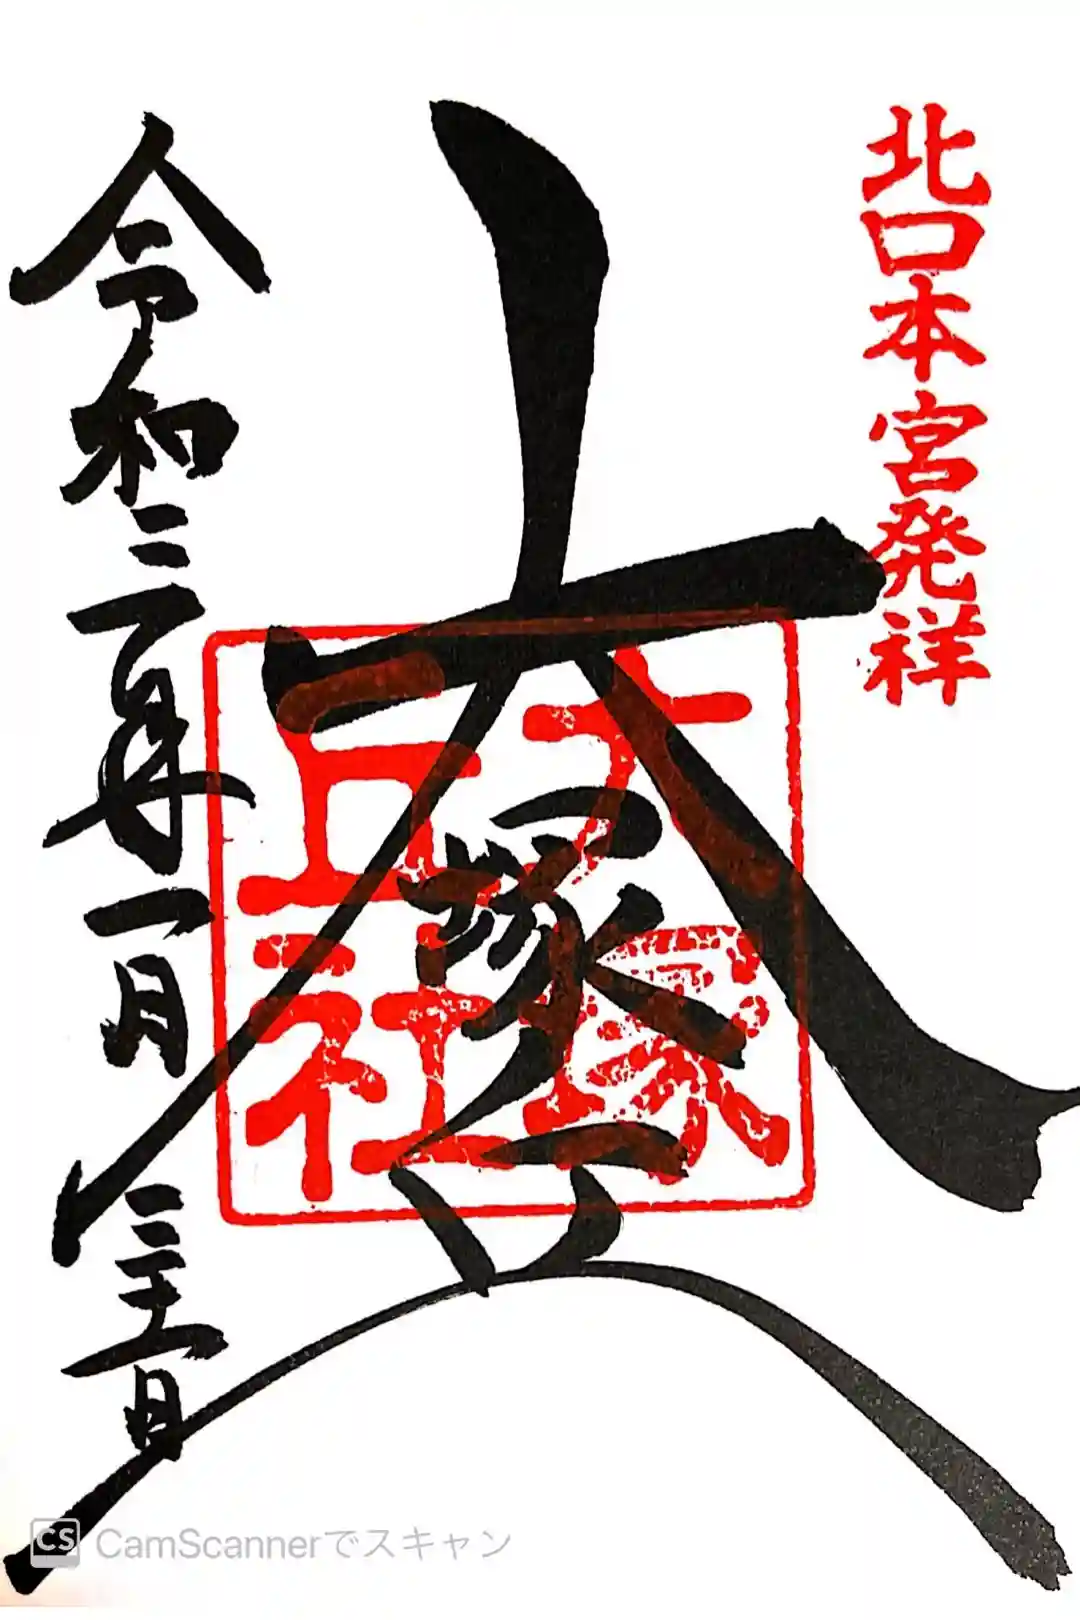 北口本宮発祥
大塚丘
大塚
丘社
令和三年一月二十一日
CS CamScannerでスキャン